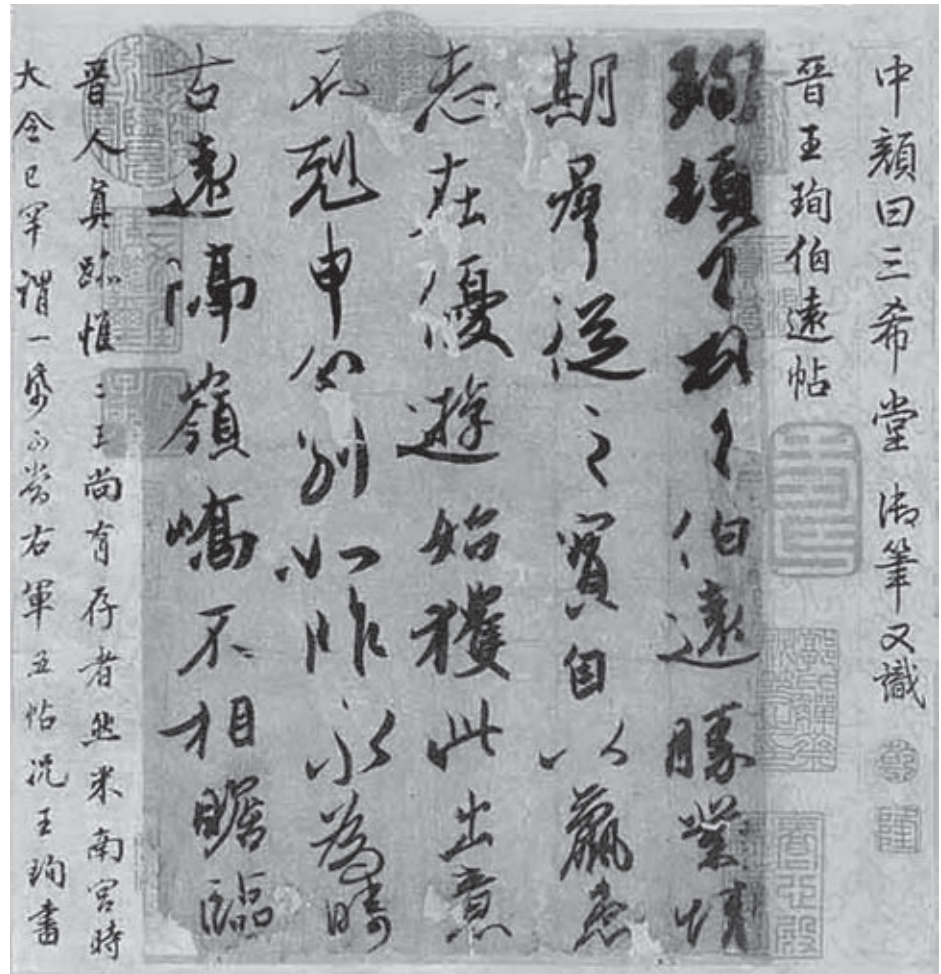 中顏曰三希堂 御筆又識
晉王珣伯遠帖
珣頓首頓首伯遠勝業情
期羣從之寶自以羸患
志在優遊始獲此出意
不剋申分別如昨永為疇
古遠隔嶺嶠不相瞻臨
晉人真跡惟二王尚有存者然米南宮時
大令已罕謂一帋可當右軍五帖況王珣書